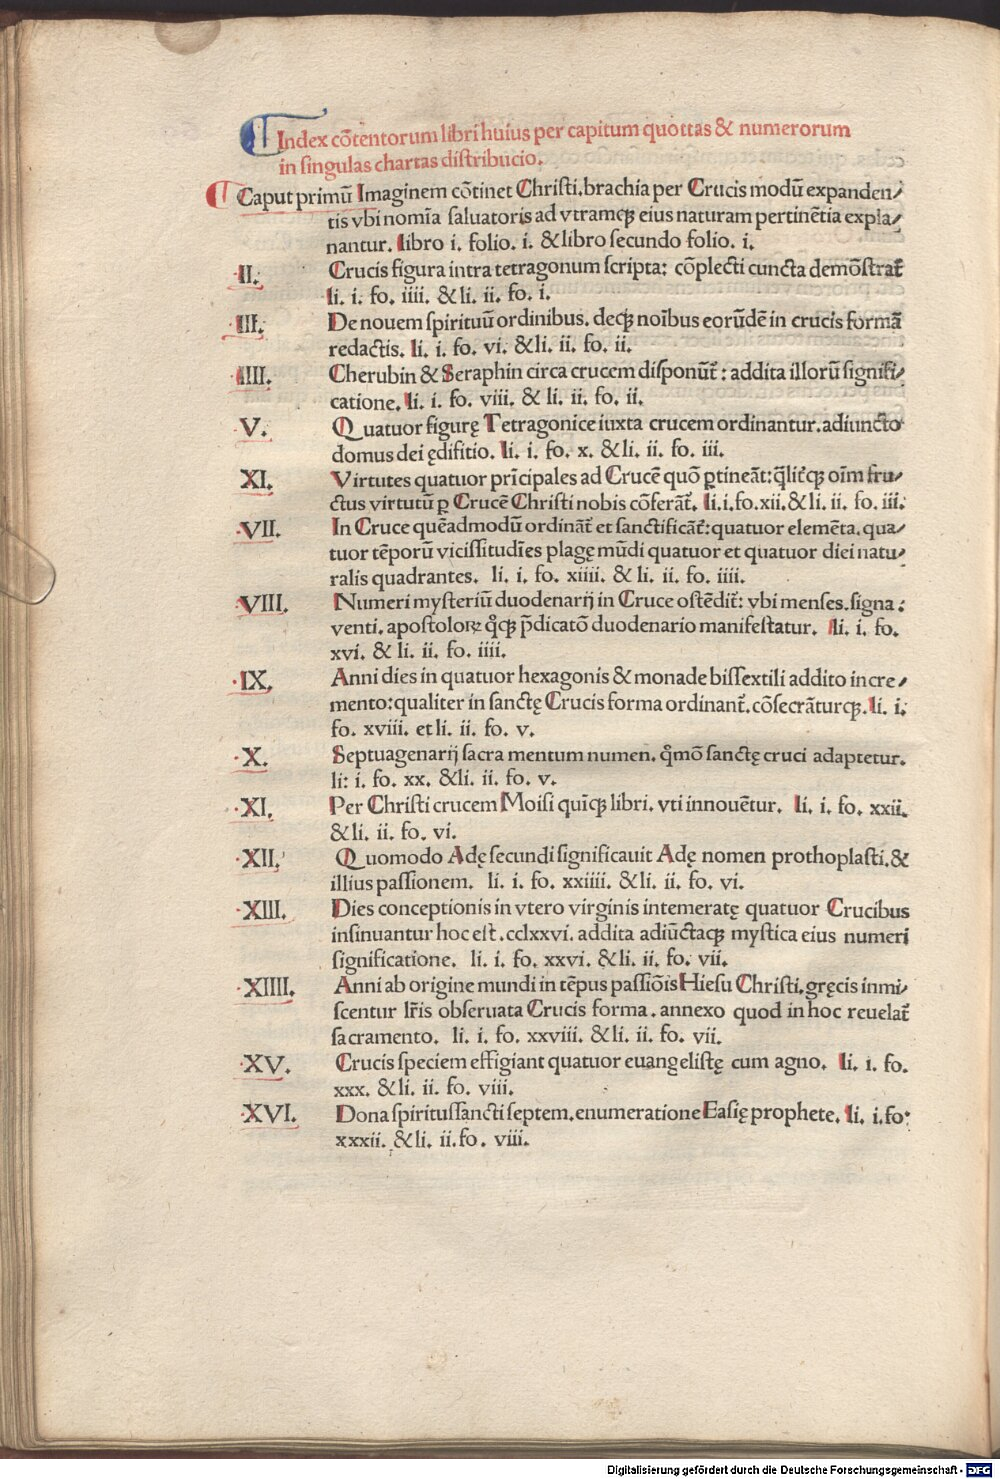 Index cõtentorum libri huius per capitum quottas & numerorum
in singulas chartas distribucio.
Caput primũ Imaginem cõtinet Christi, brachia per Crucis modũ expanden⸗
tis vbi nomĩa saluatoris ad vtramqꝫ eius naturam pertinẽtia expla⸗
nantur. libro i. folio. i. & libro secundo folio. i.
II. Crucis figura intra tetragonum scripta: cõplecti cuncta demõstrat̃
li. i. fo. iiii. & li. ii. fo. i.
III. De nouem spirituũ ordinibus. deqꝫ noĩbus eorũdẽ in crucis formã
redactis. li. i. fo. vi. & li. ii. fo. ii.
IIII. Cherubin & Seraphin circa crucem disponũt̃: addita illorũ signifi⸗
catione. li. i. fo. viii. & li. ii. fo. ii.
V. Quatuor figurę Tetragonice iuxta crucem ordinantur. adiuncto
domus dei ędifitio. li. i. fo. x. & li. ii. fo. iii.
XI. Virtutes quatuor prĩcipales ad Crucẽ quõ ꝑtineãt: q̃lit̃qꝫ oĩm fru⸗
ctus virtutũ ꝑ Crucẽ Christi nobis cõferãt̃. li. i. fo. xii. & li. ii. fo. iii.
VII. In Cruce quẽadmodũ ordinãt̃ et sanctificãt̃: quatuor elemẽta. qua⸗
tuor tẽporũ vicissitudĩes plagę mũdi quatuor et quatuor diei natu⸗
ralis quadrantes. li. i. fo. xiiii. & li. ii. fo. iiii.
VIII. Numeri mysteriũ duodenarij in Cruce ostẽdit̃: vbi menses. signa:
venti. apostoloꝝ q̊qꝫ p̃dicatõ duodenario manifestatur. li. i. fo.
xvi. & li. ii. fo. iiii.
IX. Anni dies in quatuor hexagonis & monade bissextili addito incre⸗
mento: qualiter in sanctę Crucis forma ordinant̃. cõsecrãturqꝫ. li. i.
fo. xviii. et li. ii. fo. v.
X. Septuagenarij sacra mentum numen. q̊mõ sanctę cruci adaptetur.
li: i. fo. xx. & li. ii. fo. v.
XI. Per Christi crucem Moisi quĩqꝫ libri. vti innouẽtur. li. i. fo. xxii.
& li. ii. fo. vi.
XII. Quomodo Adę secundi significauit Adę nomen prothoplasti. &
illius passionem. li. i. fo. xxiiii. & li. ii. fo. vi.
XIII. Dies conceptionis in vtero virginis intemeratę quatuor Crucibus
insinuantur hoc est. cclxxvi. addita adiũctaqꝫ mystica eius numeri
significatione. li. i. fo. xxvi. & li. ii. fo. vii.
XIIII. Anni ab origine mundi in tẽpus passiõis Hiesu Christi. gręcis inmi⸗
scentur lr̃is obseruata Crucis forma. annexo quod in hoc reuelat̃
sacramento. li. i. fo. xxviii. & li. ii. fo. vii.
XV. Crucis speciem effigiant quatuor euangelistę cum agno. li. i. fo.
xxx. & li. ii. fo. viii.
XVI. Dona spiritussancti septem. enumeratione Easię prophete. li. i. fo:
xxxii. & li. ii. fo. viii.
Digitalisierung gefördert durch die Deutsche Forschungsgemeinschaft - DFG